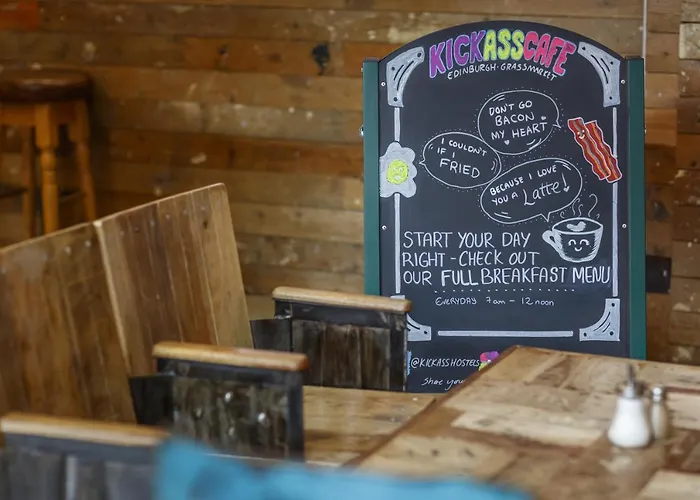 KICKASSCAFE
EDINBURGH · GRASSMARKET
DON'T GO
BACON
MY HEART
I COULDN'T
IF I
FRIED
BECAUSE I LOVE
YOU A Latte!
START YOUR DAY
RIGHT - CHECK OUT
OUR FULL BREAKFAST MENU
EVERYDAY 7am - 12 noon
@KICKASSHOSTELS